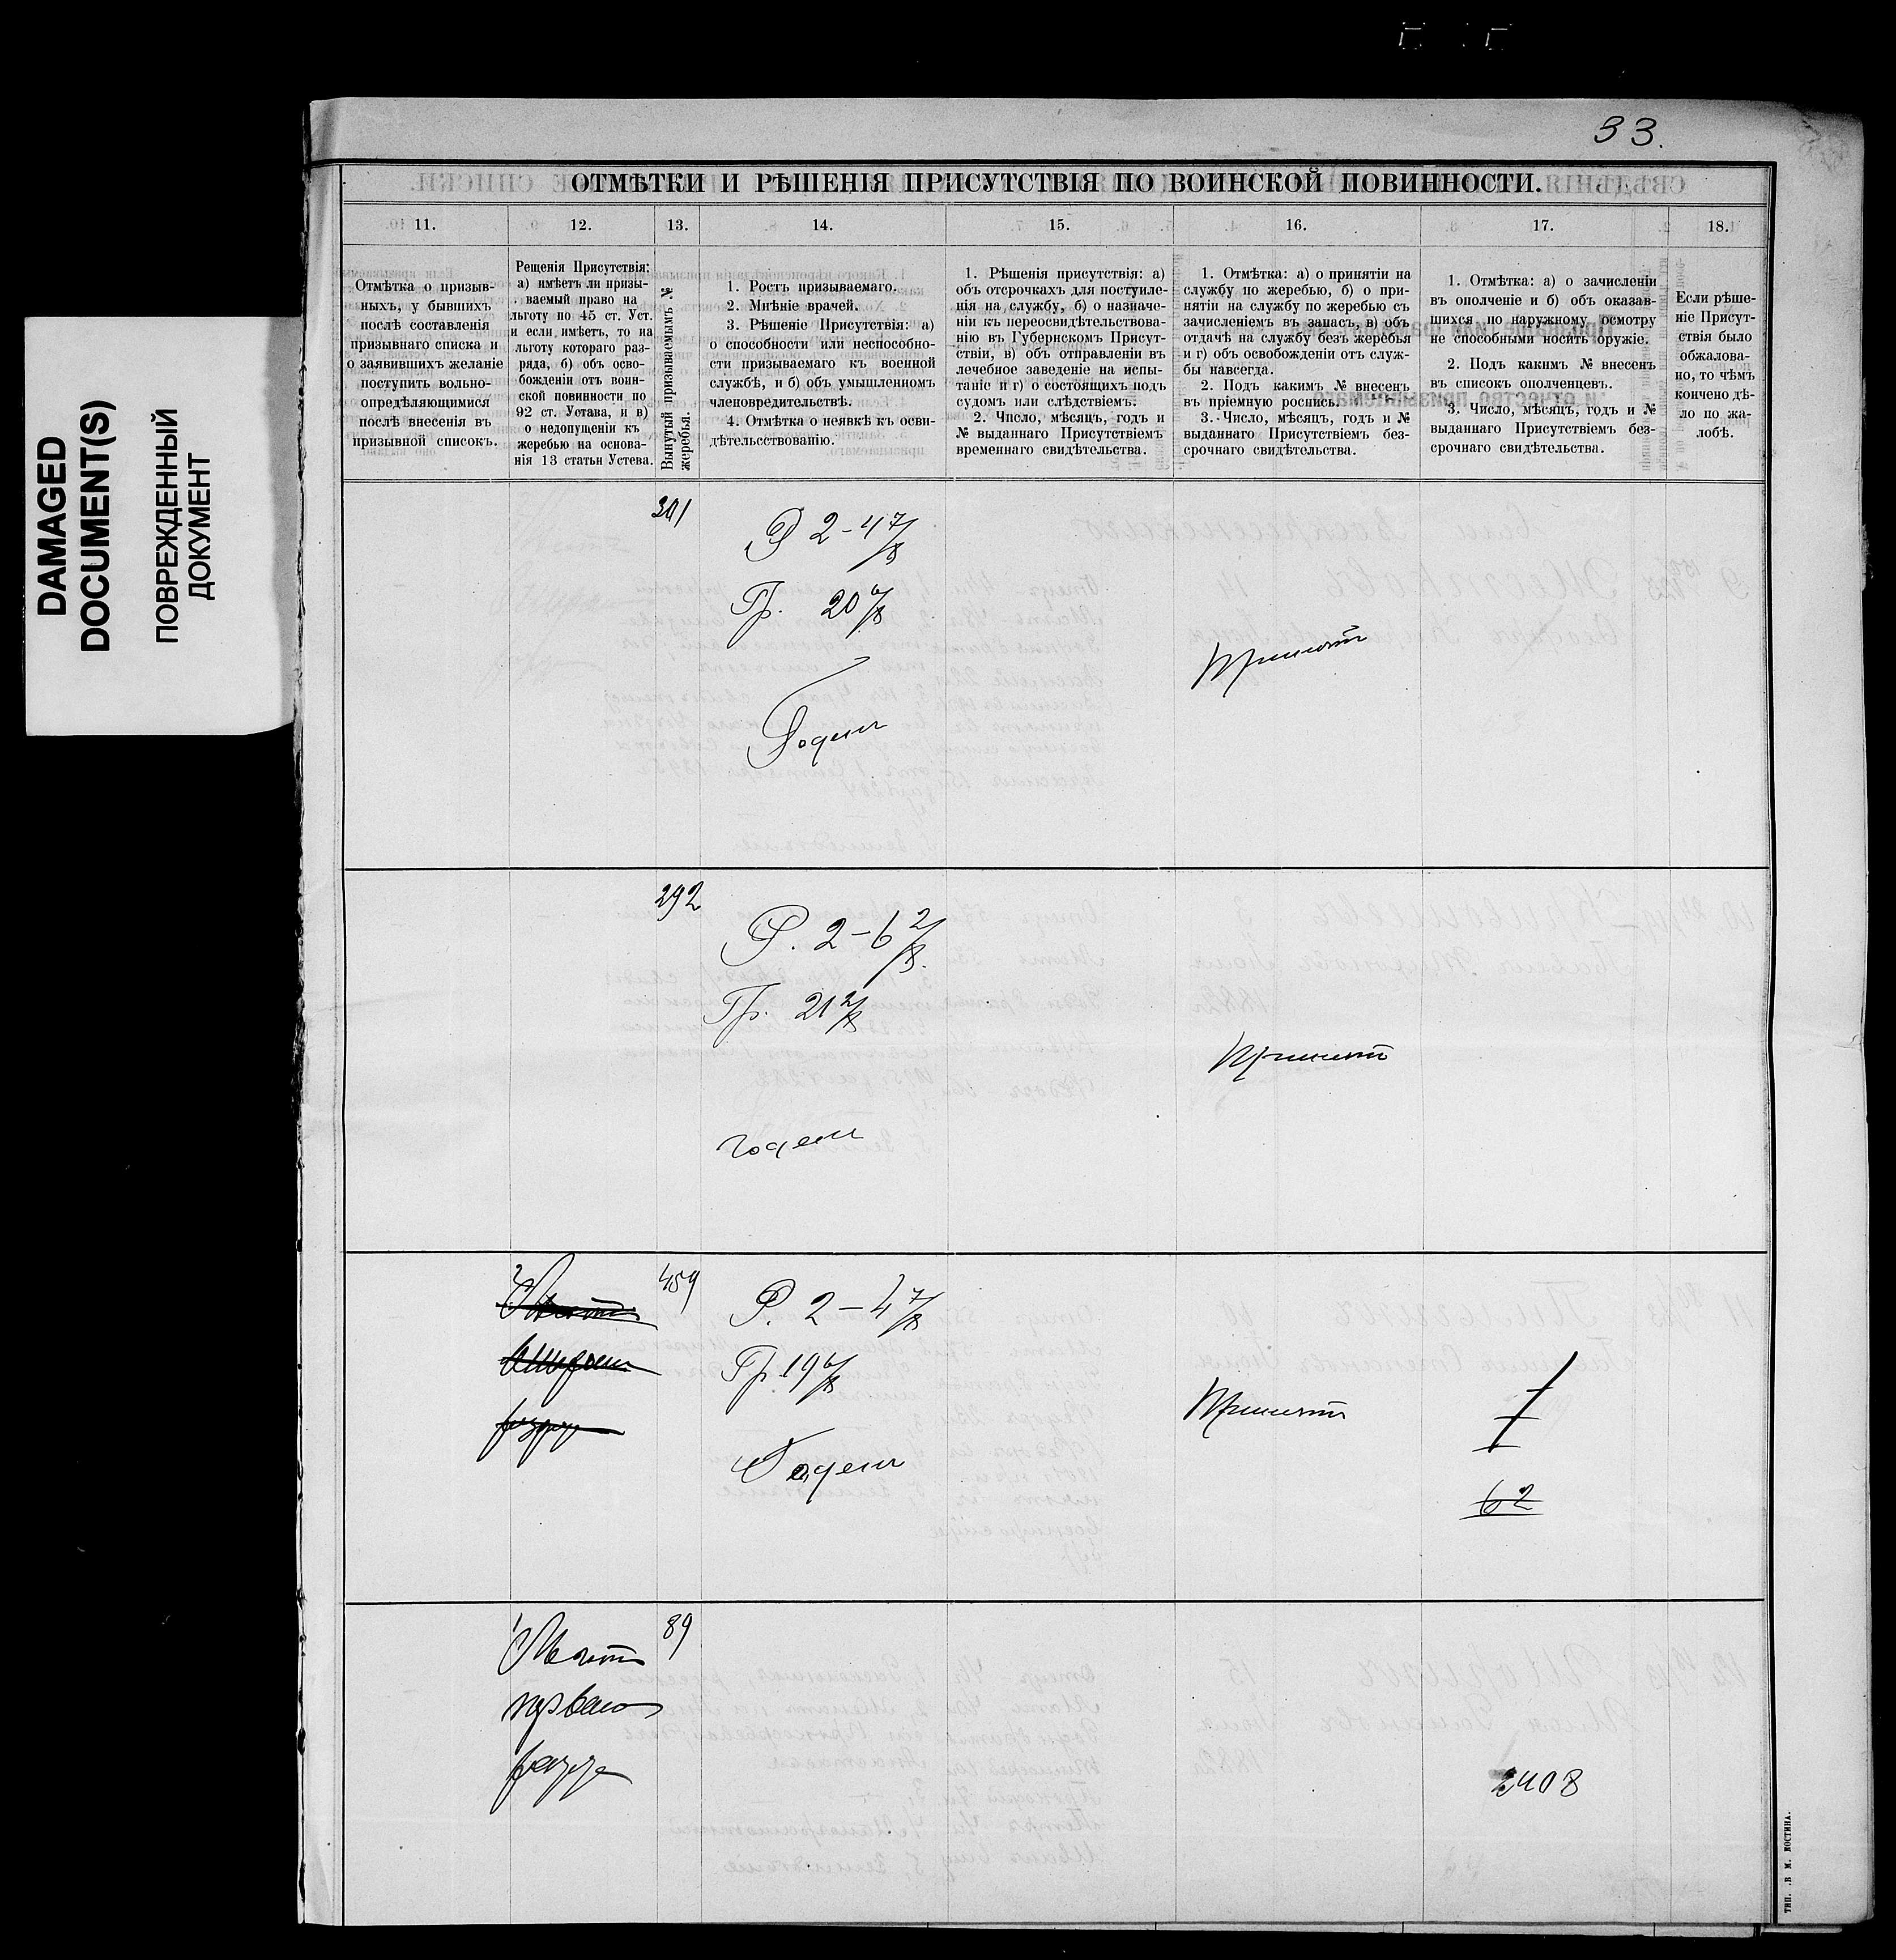 33.
DAMAGED
DOCUMENT(S)
ПОВРЕЖДЕННЫЙ
ДОКУМЕНТ
ОТМѢТКИ И РѢШЕНІЯ ПРИСУТСТВІЯ ПО ВОИНСКОЙ ПОВИННОСТИ.
11. 12. 13. 14. 15. 16. 17. 18.
Отмѣтка о призыв-
ныхъ, у бывшихъ
послѣ составленія
призывнаго списка и
о заявившихъ желаніе
поступить вольно-
опредѣляющимися
послѣ внесенія въ
призывной списокъ.
Рещенія Присутствія:
а) имѣетъ ли призы-
ваемый право на
льготу по 45 ст. Уст.
и если имѣетъ, то на
льготу котораго раз-
ряда, б) объ осво-
божденіи отъ воин-
ской повинности по
92 ст. Устава, и в)
о недопущеніи къ
жеребью на основа-
нія 13 статьи Устева.
Вынутый призываемымъ №
жеребья.
1. Ростъ призываемаго.
2. Мнѣніе врачей.
3. Рѣшеніе Присутствія: а)
о способности или неспособно-
сти призываемаго къ военной
службѣ, и б) объ умышленномъ
членовредительствѣ.
4. Отмѣтка о неявкѣ къ осви-
дѣтельсствованію.
1. Рѣшенія присутствія: а)
объ отсрочкахъ для поступле-
нія на службу, б) о назначе-
ніи къ переосвидѣтельствова-
нію въ Губернскомъ Присут-
ствіи, в) объ отправленіи въ
лечебное заведеніе на испы-
таніе и г) о состоящихъ подъ
судомъ или слѣдствіемъ.
2. Число, мѣсяцъ, годъ и
№ выданнаго Присутствіемъ
временнаго свидѣтельства.
1. Отмѣтка: а) о принятіи на
службу по жеребью, б) о при-
нятіи на службу по жеребью съ
зачисленіемъ въ запасъ, в) объ
отдачѣ на службу безъ жеребья
и г) объ освобожденіи отъ служ-
бы навсегда.
2. Подъ какимъ № внесенъ
въ пріемную роспись.
3. Число, мѣсяцъ, годъ и №
выданнаго Присутствіемъ без-
срочнаго свидѣтельства.
1. Отмѣтка: а) о зачисленіи
въ ополченіе и б) объ оказав-
шихся по наружному осмотру
не способными носить оружіе.
2. Подъ какимъ № внесенъ
въ списокъ ополченцевъ.
3. Число, мѣсяцъ, годъ и №
выданнаго Присутствіемъ без-
срочнаго свидѣтельства.
Если рѣше-
ніе Присут-
ствія было
обжалова-
но, то чѣмъ
кончено дѣ-
ло по жа-
лобѣ.
301
Р 2-4 7/8
Гр. 20 6/8
Годенъ
Принятъ
292
Р. 2-6 2/8.
Гр. 21 2/8
годенъ
Принятъ
459
Р. 2-4 7/8
Гр 19 6/8
Годенъ
Принятъ
62
Имѣетъ
первый
разряд
89
2408
ТИП. В М. КОСТИНА.